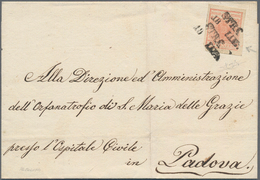 Alla Direzione ed Amministrazione
dell'Orfanatrofio di S. Maria delle Grazie
presso l'Ospitale Civile
in Padova.